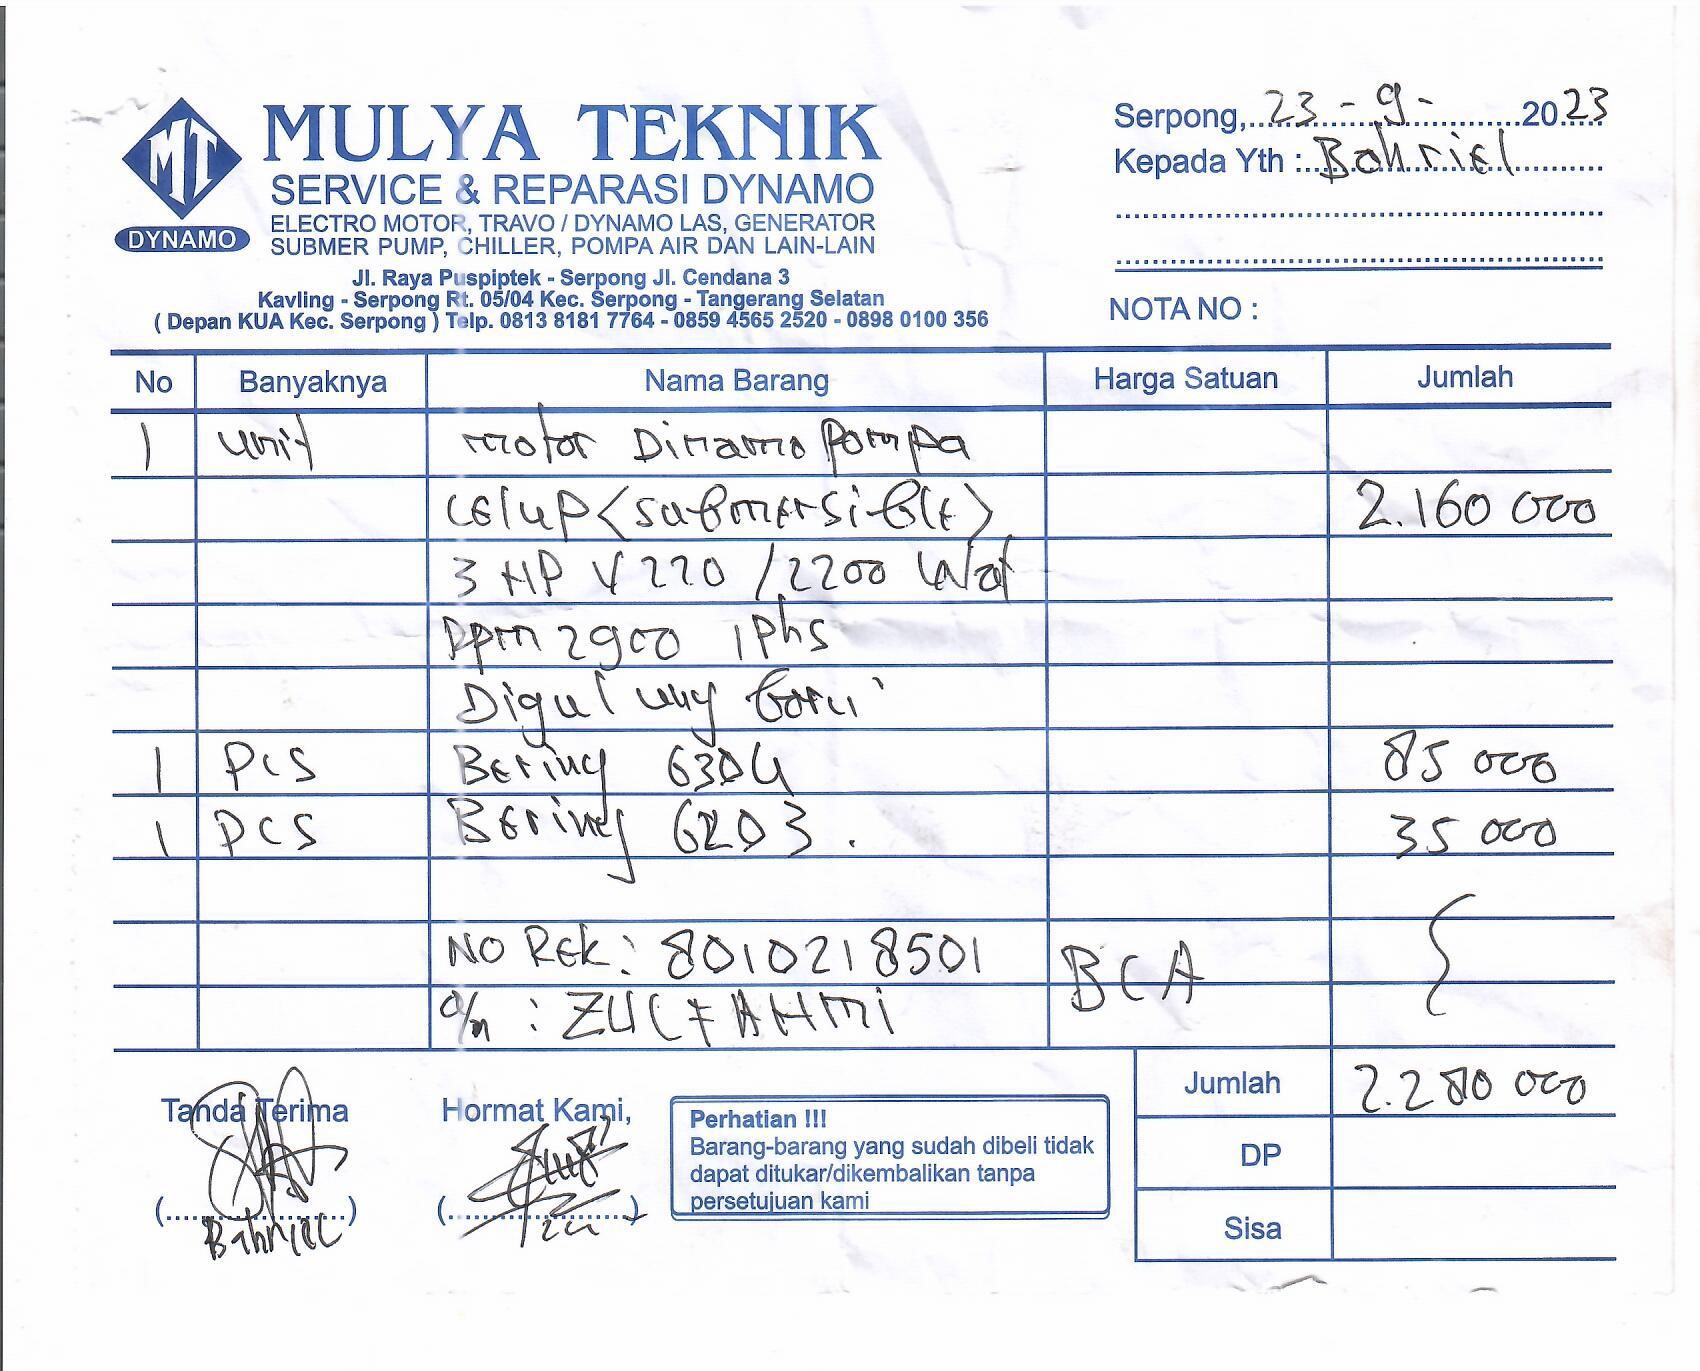 MT
DYNAMO
MULYA TEKNIK
SERVICE & REPARASI DYNAMO
ELECTRO MOTOR, TRAVO / DYNAMO LAS, GENERATOR
SUBMER PUMP, CHILLER, POMPA AIR DAN LAIN-LAIN
Jl. Raya Puspiptek - Serpong Jl. Cendana 3
Kavling - Serpong Rt. 05/04 Kec. Serpong - Tangerang Selatan
( Depan KUA Kec. Serpong ) Telp. 0813 8181 7764 - 0859 4565 2520 - 0898 0100 356
Serpong, 23 - 9 - 2023
Kepada Yth : Bahriel
NOTA NO :
No Banyaknya Nama Barang Harga Satuan Jumlah
1 unit motor Dinamo Pompa
celup <submersible> 2.160 000
3 HP V 220 / 2200 Wat
Rpm 2900 1 Phs
Digulung baru
1 Pcs Bering 6304 85 000
1 PCS Bering 6203. 35 000
NO Rek: 8010218501 BCA
a/n : ZULFAHMI
Jumlah 2.280 000
DP
Sisa
Tanda Terima
Bahriel
Hormat Kami,
Perhatian !!!
Barang-barang yang sudah dibeli tidak
dapat ditukar/dikembalikan tanpa
persetujuan kami